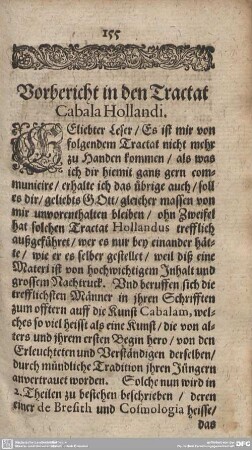 155
Vorbericht in den Tractat
Cabala Hollandi.
GEliebter Leser / Es ist mir von
folgendem Tractat nicht mehr
zu Handen kommen / als was
ich dir hiemit gantz gern com-
municire / erhalte ich das übrige auch / soll
es dir / geliebts GOtt / gleicher massen von
mir unvorenthalten bleiben / ohn Zweifel
hat solchen Tractat Hollandus trefflich
außgeführet / wer es nur bey einander hät-
te / wie er es selber gestellet / weil diß eine
Materi ist von hochwichtigem Inhalt und
grossem Nachtruck. Und beruffen sich die
trefflichsten Männer in jhren Schrifften
zum offtern auff die Kunst Cabalam, wel-
ches so viel heisst als eine Kunst / die von al-
ters und jhrem ersten Begin hero / von den
Erleuchteten und Verständigen derselben /
durch mündliche Tradition jhren Jüngern
anvertrauet worden. Solche nun wird in
2. Theilen zu bestehen beschrieben / deren
einer de Bresith und Cosmologia heisse /
das